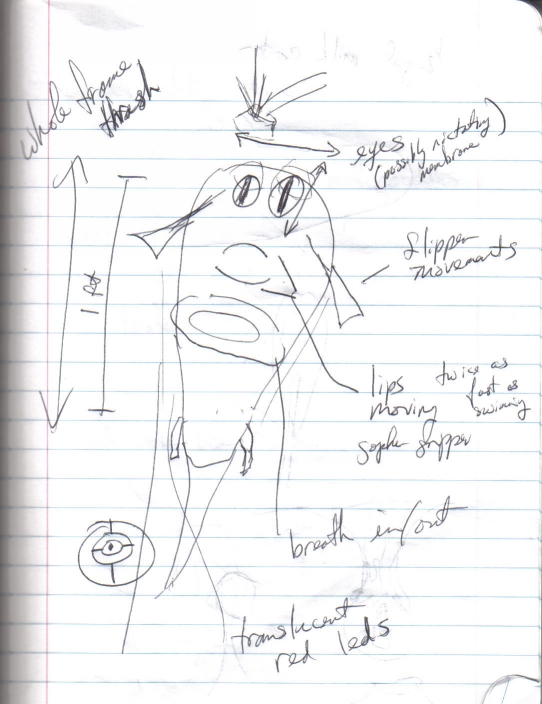 whole frame
thrash
eyes
(possibly nictating)
membrane
flipper
movements
1 ft
lips
moving
twice as
fast as
swimming
gopher gripper
breath in/out
translucent
red leds